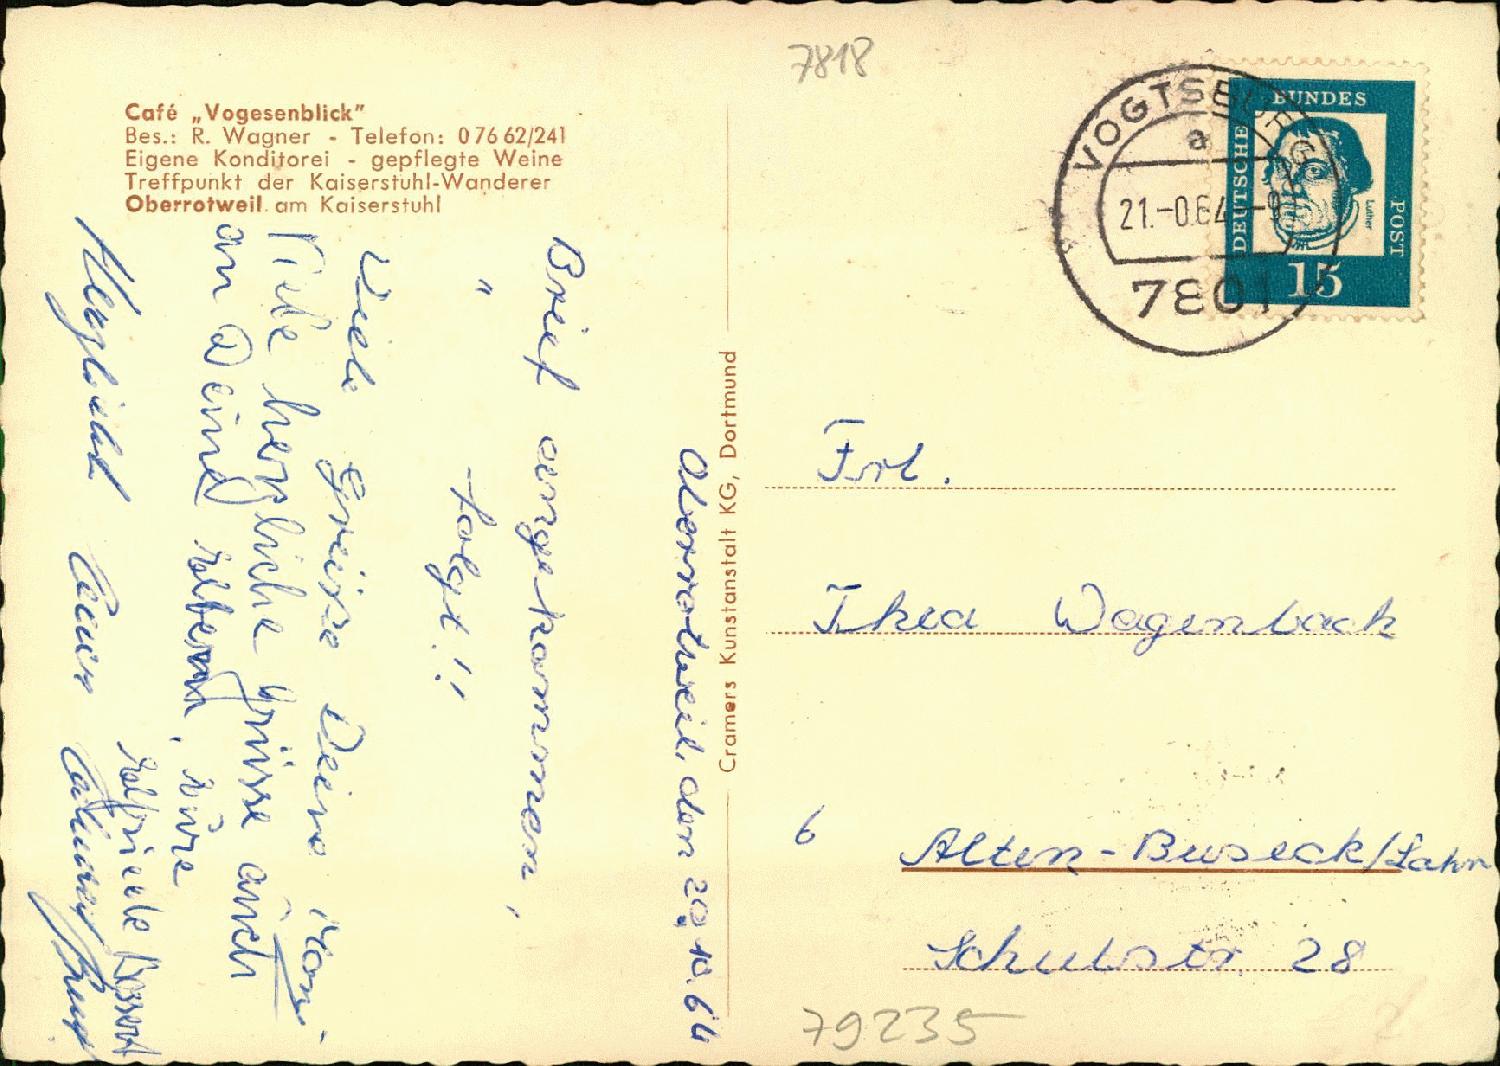 7818
Café „Vogesenblick”
Bes.: R. Wagner - Telefon: 0 76 62/241
Eigene Konditorei - gepflegte Weine
Treffpunkt der Kaiserstuhl-Wanderer
Oberrotweil am Kaiserstuhl
Oberrotweil, den 20.10.64
Brief angekommen,
" folgt!!
Viele Grüsse Deine
herzliche Grüsse auch
an Deine Eltern,
Herzlichst
Cramers Kunstanstalt KG, Dortmund
VOGTSBURG
a
21.-0.64-9
7801
DEUTSCHE BUNDES POST
Luther
15
Frl.
Thea Wagenbach
6 Alten-Buseck/Lahn
Schulstr. 28
79235